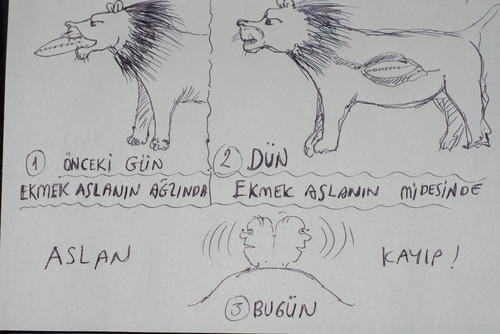 1 ÖNCEKİ GÜN
2 DÜN
EKMEK ASLANIN AĞZINDA
EKMEK ASLANIN MİDESİNDE
ASLAN
KAYIP!
3 BUGÜN